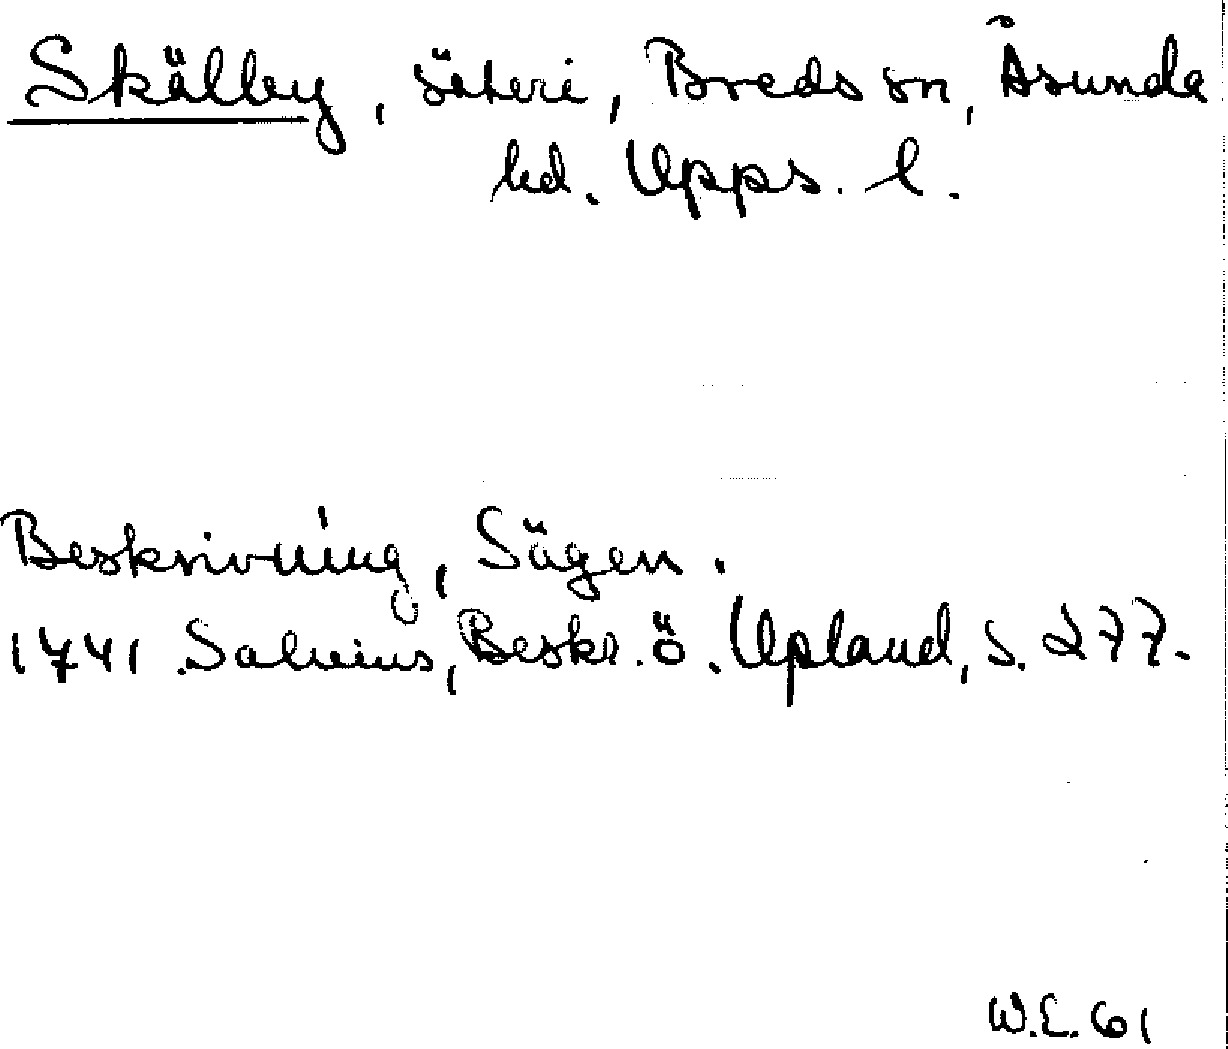 Skälby, säteri, Breds sn, Åsunda
hd. Upps. l.
Beskrivning, Sägen.
1741 Salvius, Beskr. ö. Upland, s. 277.
W.E. 61